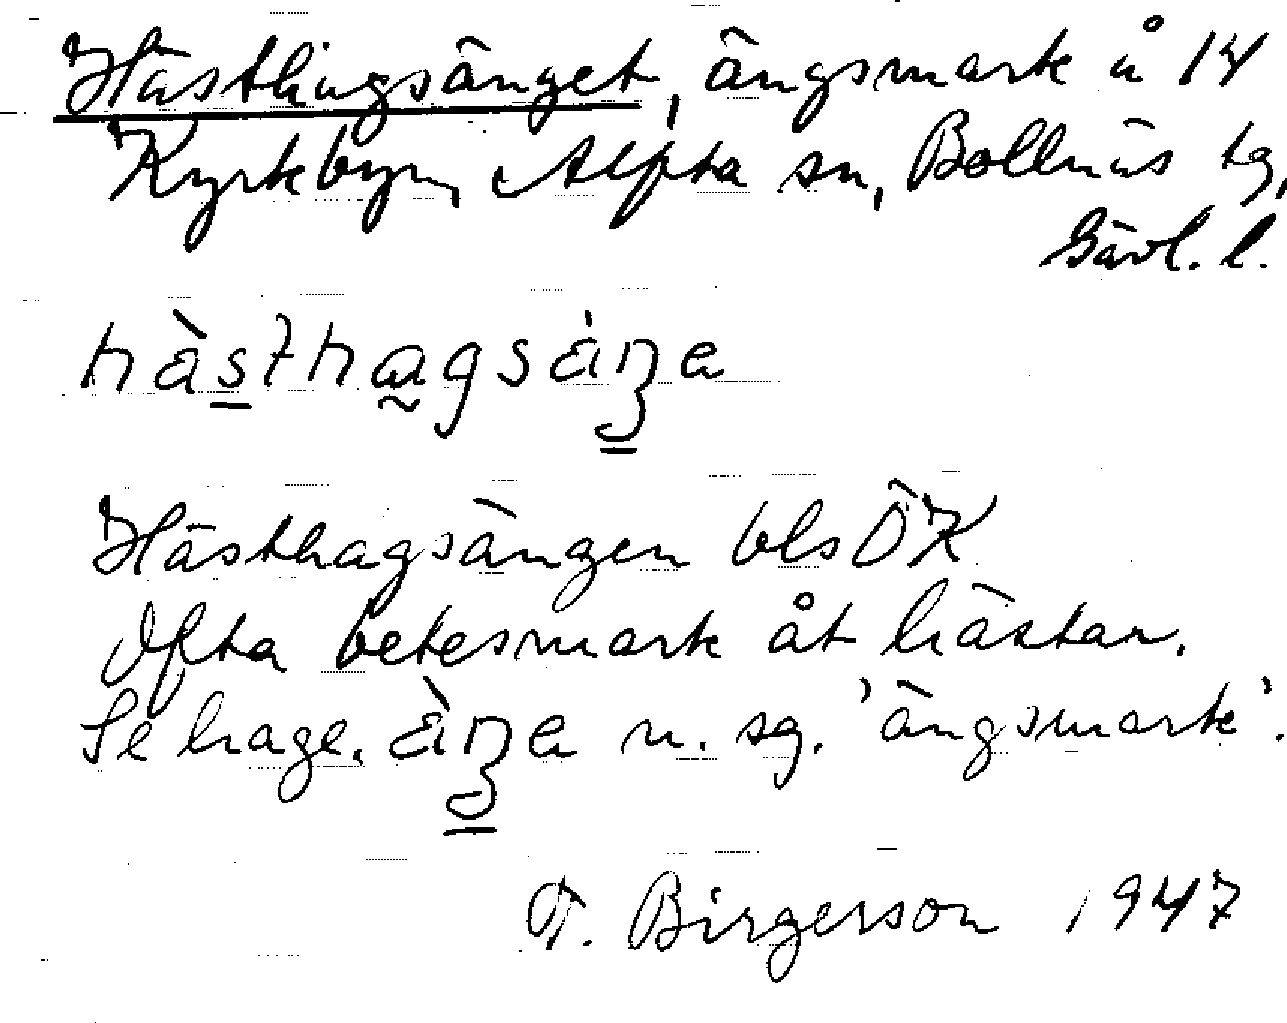 Hästhagsänget, ängsmark å 14
Kyrkbyn, Alfta sn, Bollnäs tg,
Gävl. l.
hàsthagsáŋe
Hästhagsängen bls ÖK
Ofta betesmark åt hästar.
Se hage. àŋe n. sg. 'ängsmark'.
T. Birgerson 1947